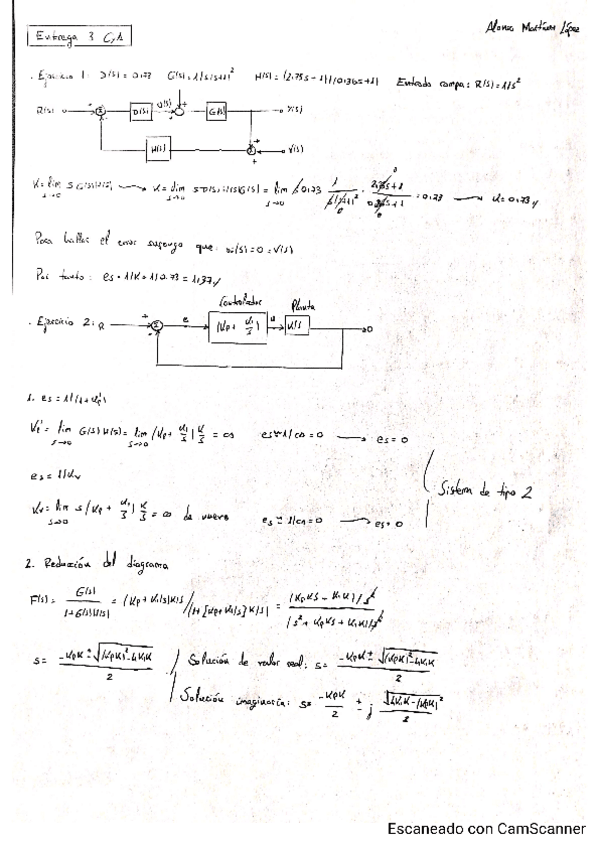 Alonso Martínez López
Entrega 3 C.A
. Ejercicio 1: D(s) = 0.73 G(s) = 1/s(s+1)² H(s) = (2.75s+1)/(0.36s+1) Entrada rampa: R(s) = 1/s²
R(s) + - Σ D(s) U(s) + G(s) Y(s)
H(s) Σ + + V(s)
K = lim s G(s)H(s) → K = lim s D(s)H(s)G(s) = lim s 0.73 1/s(s+1)² · 2.75s+1/0.36s+1 = 0.73 → K = 0.73
s→0 s→0 s→0
Para hallar el error supongo que: w(s) = 0 = V(s)
Por tanto: es = 1/K = 1/0.73 = 1.37
Controlador Planta
. Ejercicio 2: R + - Σ e (Kp + KI/s) u K/s 0
1. es = 1/(1+Kp')
Kp' = lim G(s)H(s) = lim (Kp + KI/s) K/s = ∞ es ≈ 1/∞ = 0 → es = 0
s→0 s→0
es = 1/Kv
Kv = lim s (Kp + KI/s) K/s = ∞ de nuevo es ≈ 1/∞ = 0 → es = 0
s→0
Sistema de tipo 2
2. Reducción del diagrama
F(s) = G(s)/1+G(s)H(s) = (Kp + KI/s)K/s / (1+[Kp+KI/s]K/s) = (KpKs + KIK)/s² / (s² + KpKs + KIK)/s²
s = -KpK ± √(KpK)² - 4KIK / 2 Solución de valor real: s = -KpK ± √(KpK)² - 4KIK / 2
Solución imaginaria: s = -KpK/2 ± j √4KIK - (KpK)² / 2
Escaneado con CamScanner